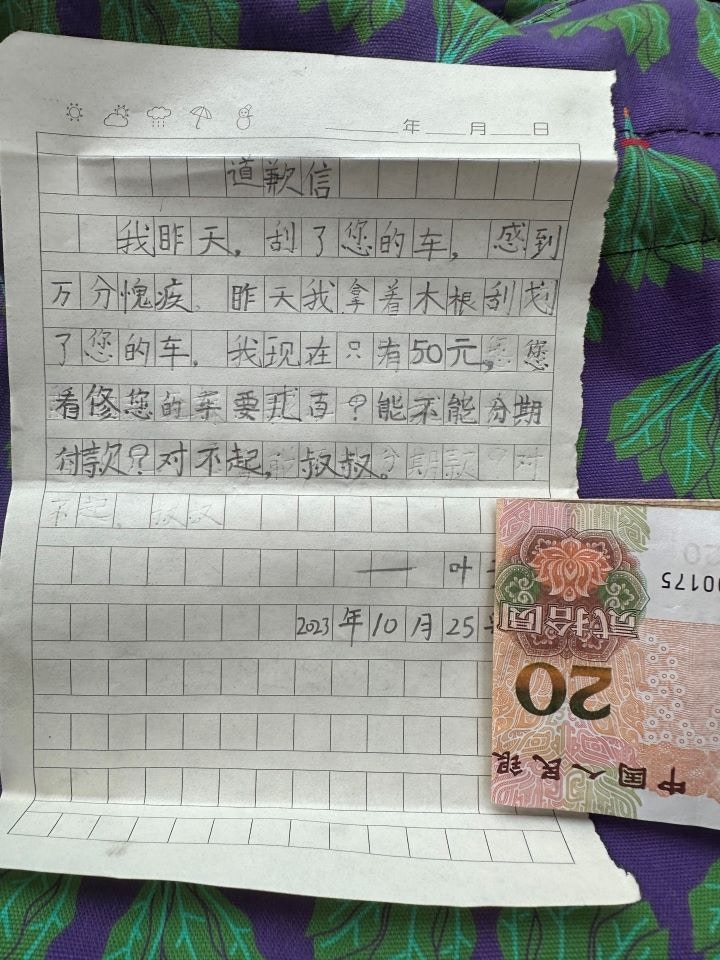 年 月 日
道歉信
我昨天，刮了您的车，感到
万分愧疚。昨天我拿着木根刮划
了您的车。我现在只有50元，您
看修您的车要我百？能不能分期
付款？对不起，叔叔。
不起，叔叔
—— 叶
2023年10月25
00175
20
贰拾圆
20
中国人民银